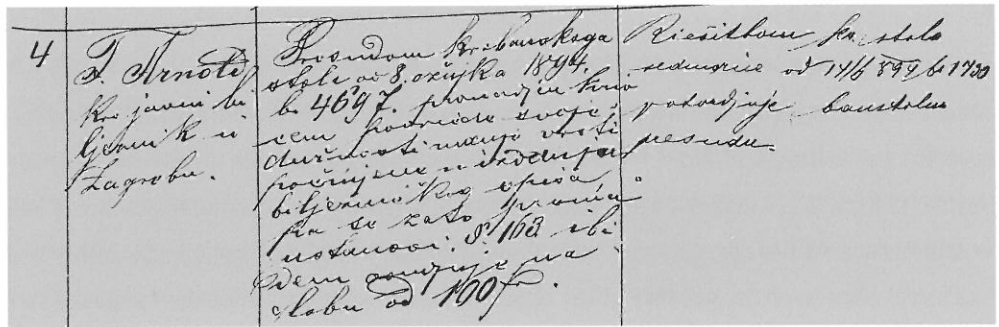 4
F. Arnold
kr. javni bi
ljeznik u
Zagrebu.
Presudom kr. banskoga
stola od 8. ožujka 1894.
br. 4697. pronadjen kriv
cem povrede svoje
dužnosti
počinjene
bilježničkog
pa se zato prema
ustanovi §. 163 ibi
dem osudjuje na
globu od 100 fr.
Riešitbom kr. stola
sedmorice od 14/6 894 br 1730
potvrdjuje banstolnu
presudu.